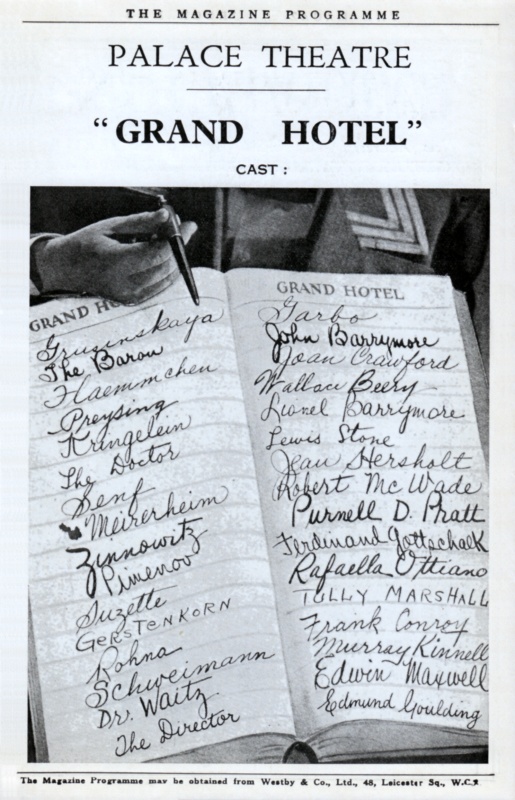 THE MAGAZINE PROGRAMME
PALACE THEATRE
"GRAND HOTEL"
CAST :
GRAND HO
Grusinskaya
The Baron
Flaemmchen
Preysing
Kringelein
The Doctor
Senf
Meirerheim
Zinnowitz
Pimenov
Suzette
GERSTENKORN
Rohna
Schweimann
Dr. Waitz
The Director
GRAND HOTEL
Garbo
John Barrymore
Joan Crawford
Wallace Beery
Lionel Barrymore
Lewis Stone
Jean Hersholt
Robert McWade
Purnell D. Pratt
Ferdinand Gottschalk
Rafaella Ottiano
TULLY MARSHALL
Frank Conroy
Murray Kinnell
Edwin Maxwell
Edmund Goulding
The Magazine Programme may be obtained from Westby & Co., Ltd., 48, Leicester Sq., W.C.2